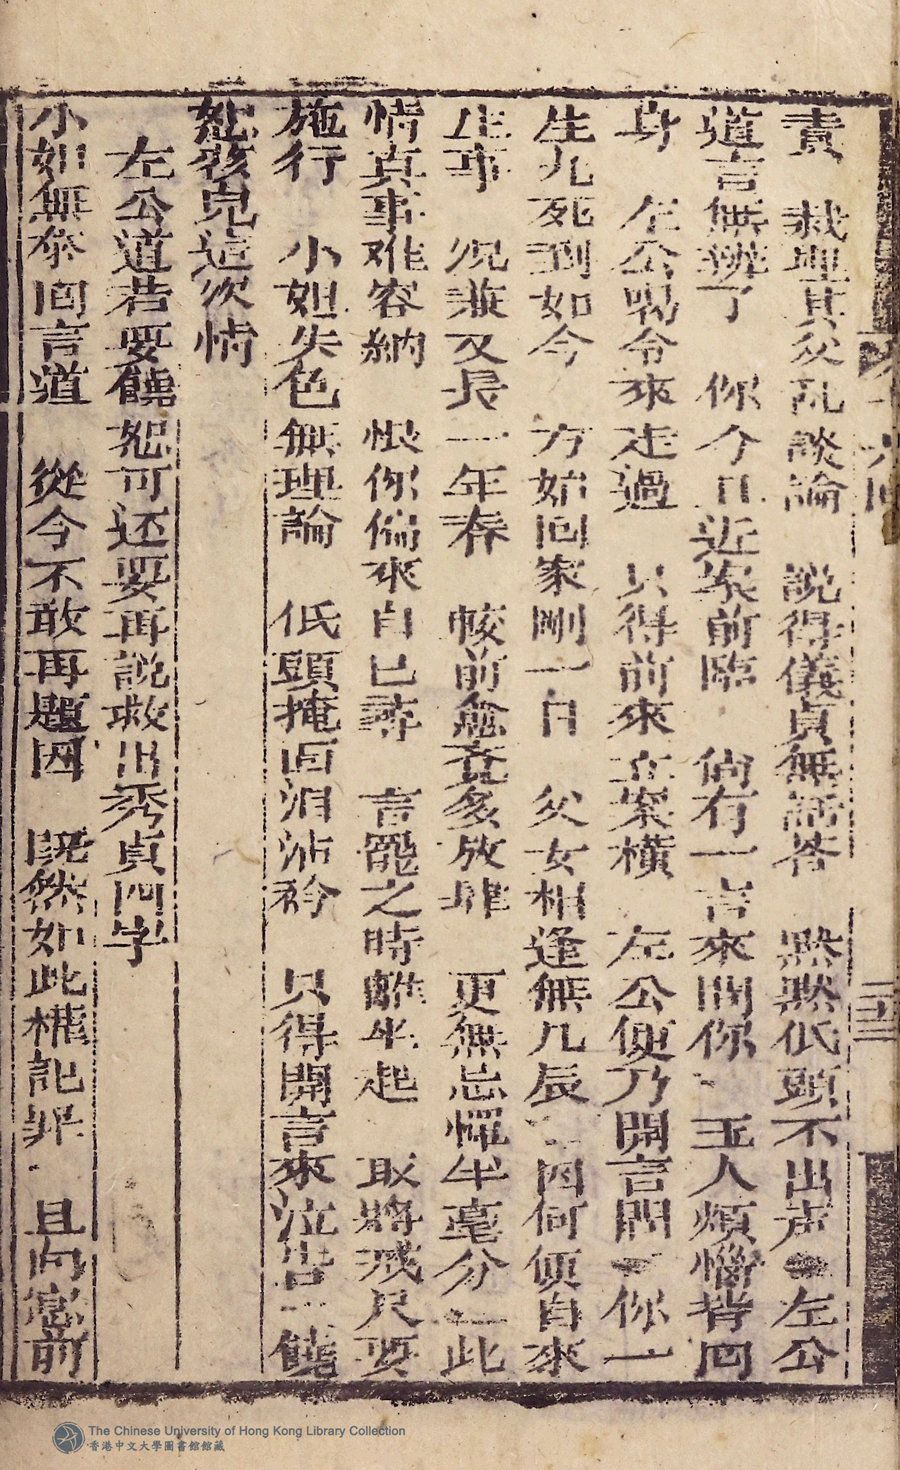 責 裁埋其父乱談論 説得儀貞無話答 黙黙低頭不出声 左公
道言無辨了 你今日近案前臨 倘有一言來問你 玉人煩惱背囬
身 左公喝令來走過 只得前來立案橫 左公便乃開言問 你一
生九死到如今 方始回家剛一日 父女相逢無几辰 因何便自來
生事 况兼又長一年春 較前愈覚多放肆 更無忌憚半毫分 此
情真事难容納 恨你偏來自已尋 言罷之時離坐起 取將戒尺要
施行 小姐失色無理論 低頭掩面泪沾衿 只得開言來泣告 饒
恕孩兒這次情
左公道若要饒恕可还要再説救出秀貞四字
小姐無奈回言道 從今不敢再題因 既然如此權記罪 且向窓前
二十三
The Chinese University of Hong Kong Library Collection
香港中文大學圖書館館藏